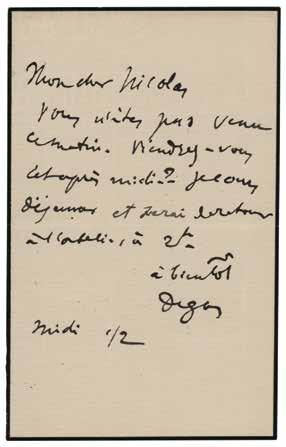 Mon cher Nicolas
Vous n'êtes pas venu
ce matin. Viendrez-vous
cet après midi? Je cours
déjeuner et serai de retour
à l'atelier, à 2h
à bientôt
Degas
midi 1/2